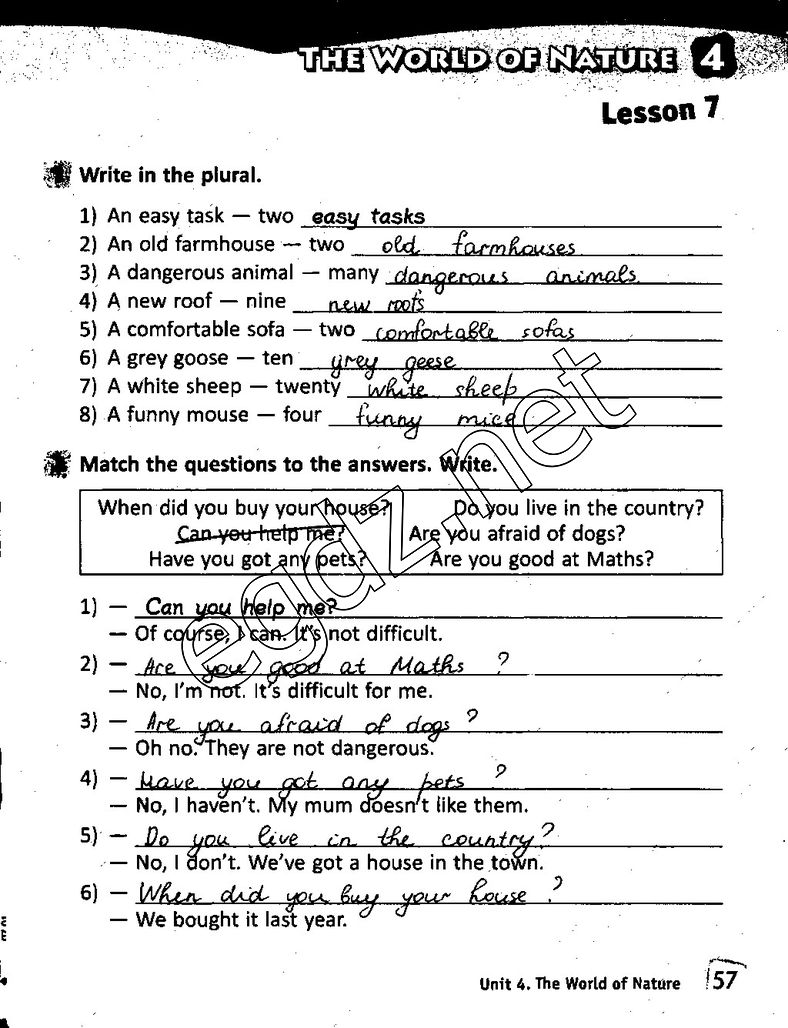 THE WORLD OF NATURE 4
Lesson 7
1 Write in the plural.
1) An easy task — two easy tasks
2) An old farmhouse — two old farmhouses
3) A dangerous animal — many dangerous animals
4) A new roof — nine new roofs
5) A comfortable sofa — two comfortable sofas
6) A grey goose — ten grey geese
7) A white sheep — twenty white sheep
8) A funny mouse — four funny mice
Match the questions to the answers. Write.
When did you buy your house? Do you live in the country?
Can you help me? Are you afraid of dogs?
Have you got any pets? Are you good at Maths?
1) — Can you help me?
— Of course, I can. It's not difficult.
2) — Are you good at Maths ?
— No, I'm not. It's difficult for me.
3) — Are you afraid of dogs ?
— Oh no. They are not dangerous.
4) — Have you got any pets ?
— No, I haven't. My mum doesn't like them.
5) — Do you live in the country?
— No, I don't. We've got a house in the town.
6) — When did you buy your house ?
— We bought it last year.
Unit 4. The World of Nature 57
egdz.net